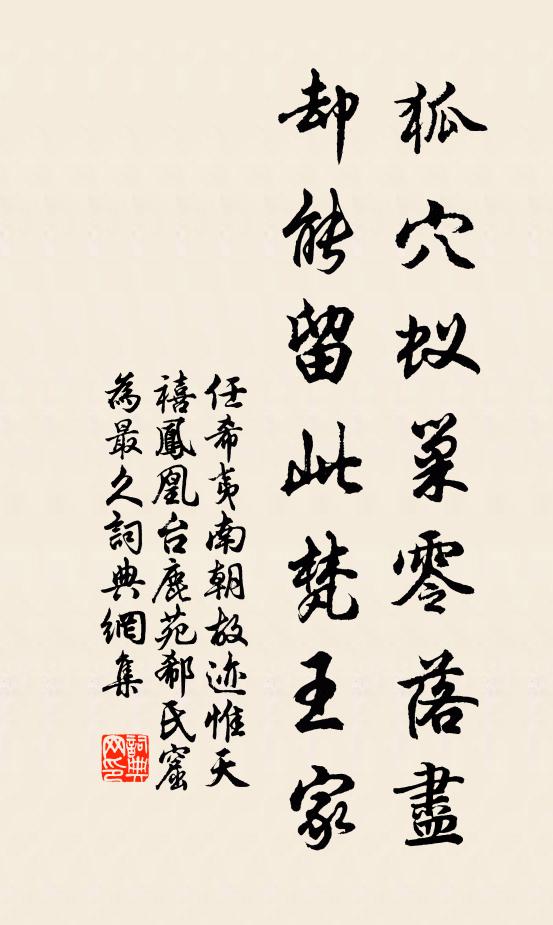 狐穴蚁巢零落盡
却能留此梵王家
任希夷南朝故迹惟天
禧鳳凰台鹿苑郗氏窟
為最久詞典網集
詞典網印